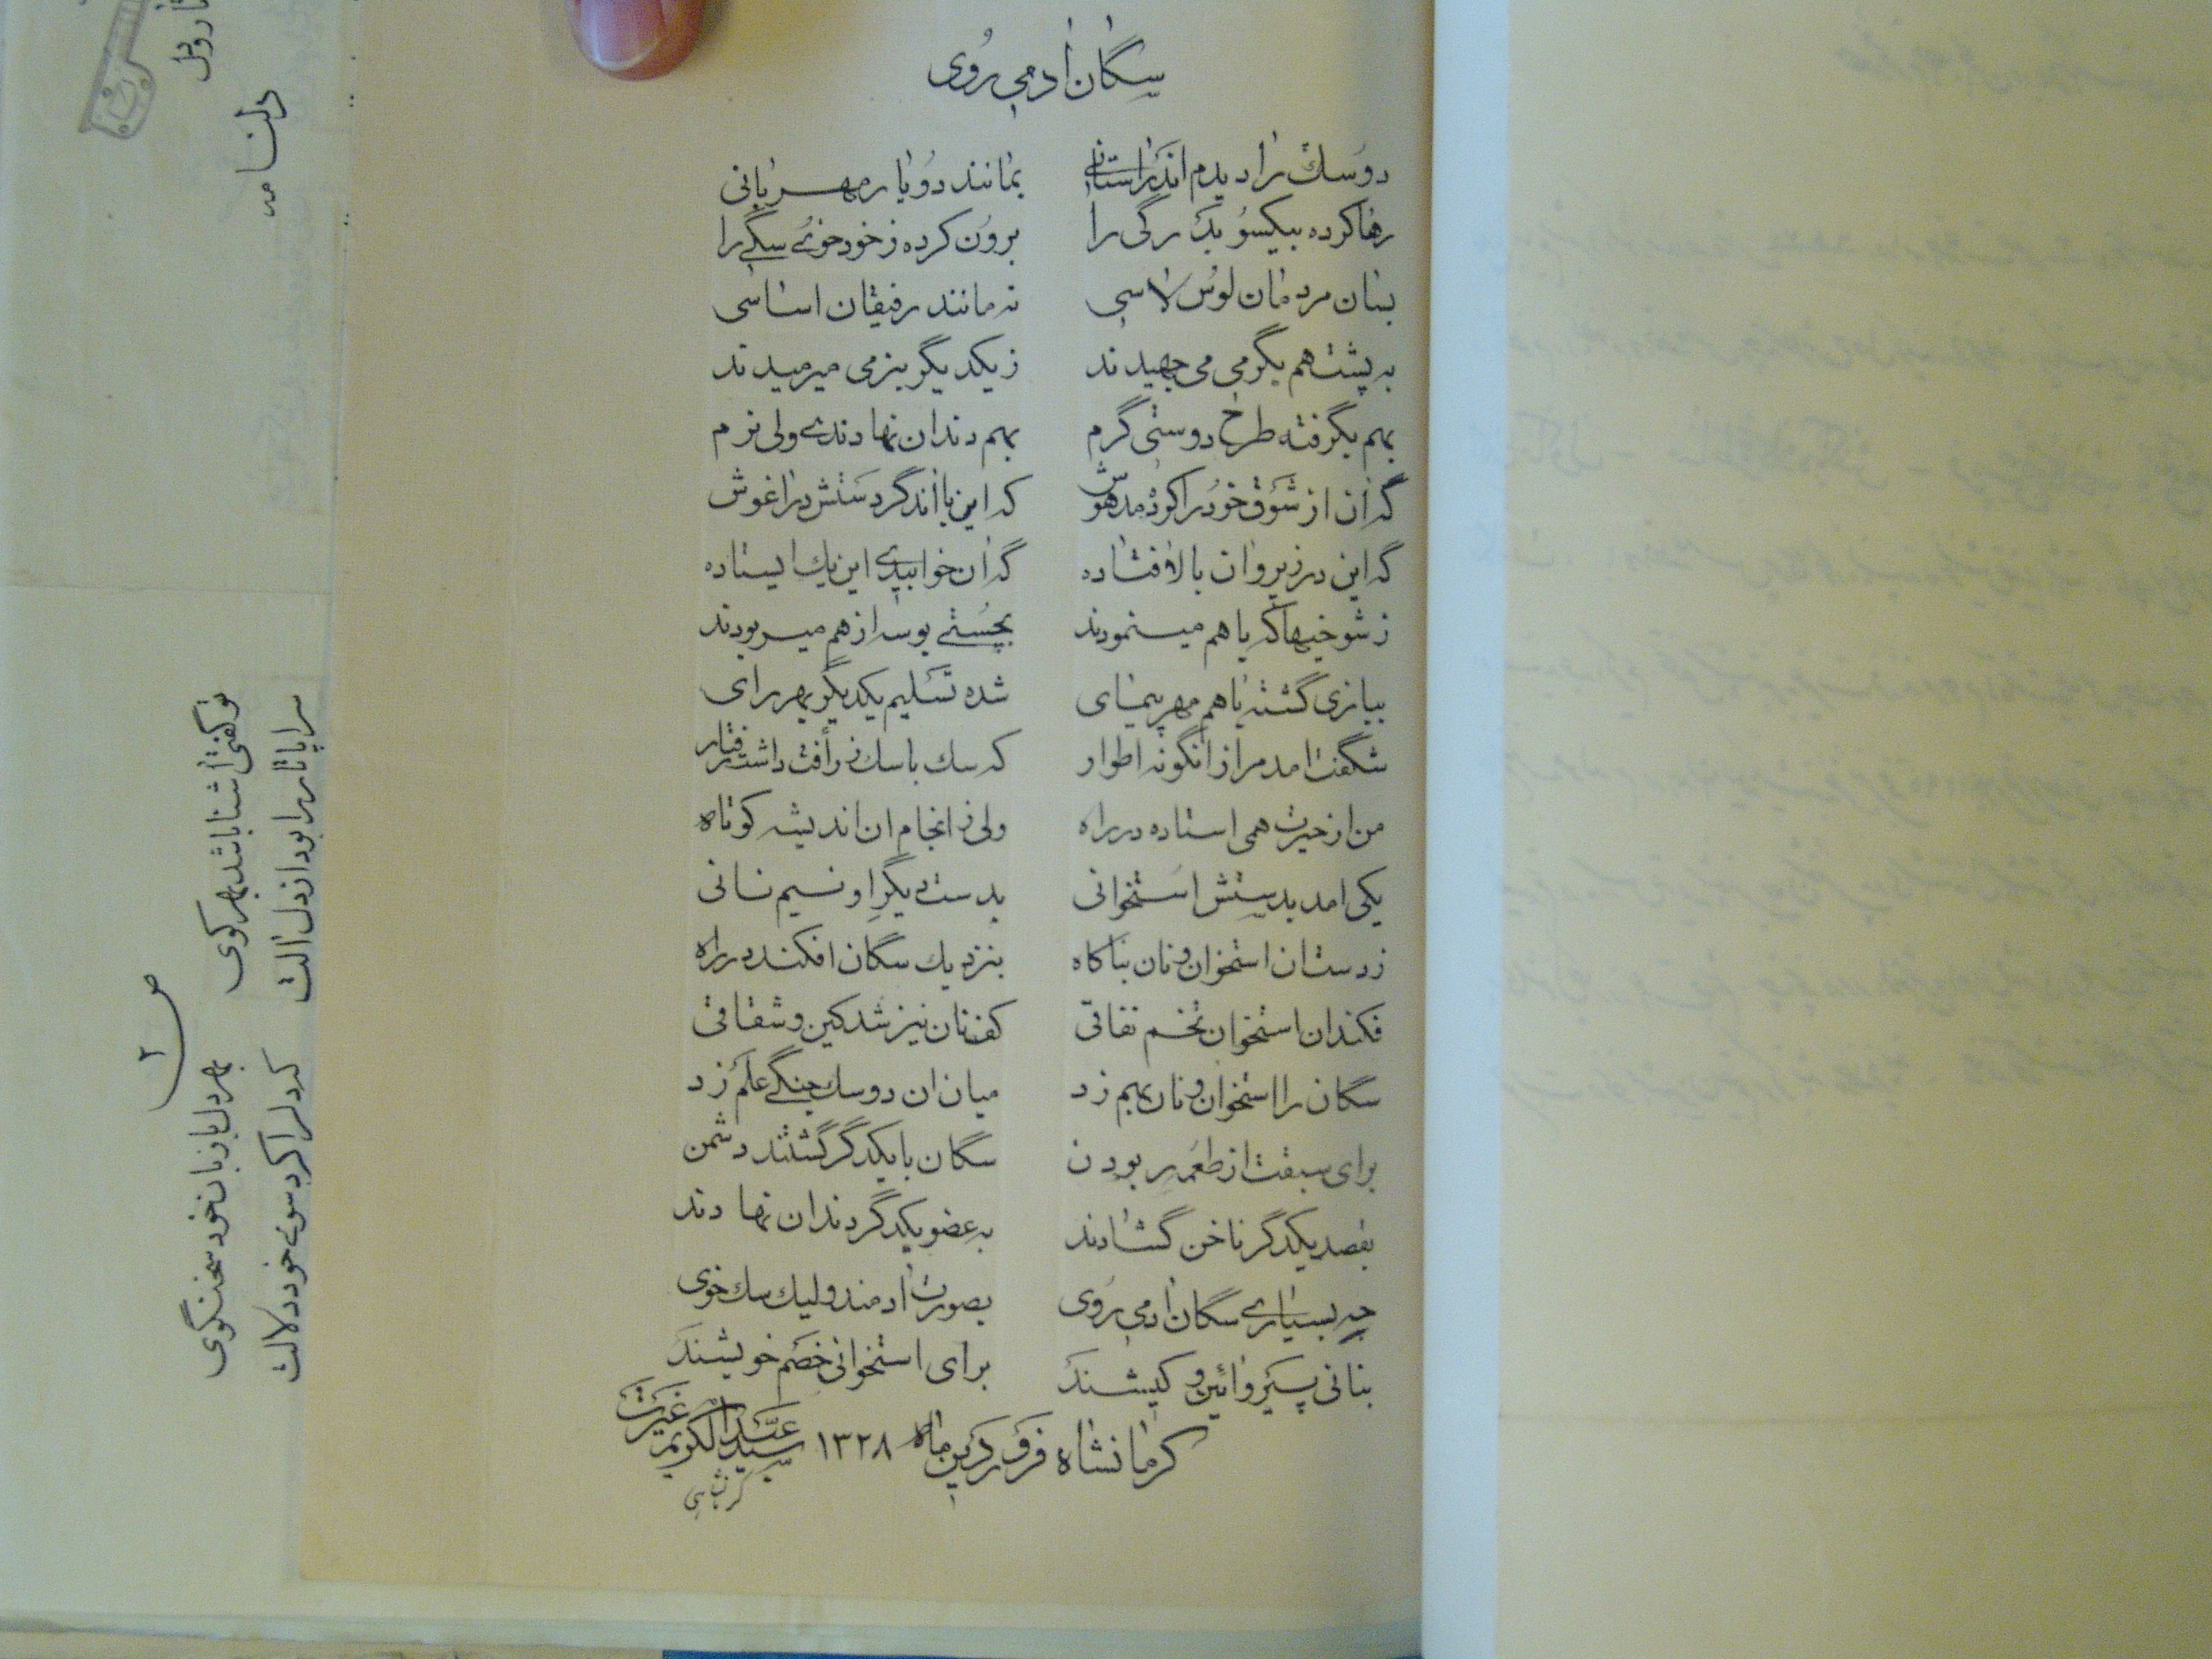 سگان آدمی روی
دو سگ را دیدم اندر آستانی بمانند دو یار مهربانی
رها کرده بیکسو بد رگی را برون کرده ز خود خوی سگی را
بسان مردمان لوس لاسی نه مانند رفیقان اساسی
به پشت هم بگرمی می جهیدند ز یکدیگر بنرمی میرمیدند
بهم بگرفته طرح دوستی گرم بهم دندان نهادندی ولی نرم
گه آن از شوق خود را کرده مدهوش که این با آن گردستش در آغوش
گه این در زیر و آن بالا فتاده گه آن خوابیدی این یک ایستاده
ز شوخیها که با هم مینمودند بچستی بوسه از هم میربودند
ببازی گشته با هم مهر پیمای شده تسلیم یکدیگر بهر رای
شگفت آمد مرا زانگونه اطوار که سگ با سگ ز رأفت داشت رفتار
من از حیرت همی استاده در راه ولی ز انجام آن اندیشه کوتاه
یکی آمد بدستش استخوانی بدست دیگر او نسیم نانی
ز دست آن استخوان و نان بناگاه بنزدیک سگان افکند در راه
فکند آن استخوان تخم نفاقی کف نان نیز شد کین و شقاقی
سگان را استخوان و نان بهم زد میان آن دو سگ جنگی علم زد
برای سبقت از طعمه ربودن سگان با یکدگر گشتند دشمن
بقصد یکدگر ناخن گشادند به عضو یکدگر دندان نهادند
چه بسیاری سگان آدمی روی بصورت آدمند ولیک سگ خوی
بنانی پیرو آئین و کیشند برای استخوانی خصم خویشند
کرمانشاه فروردین ماه ۱۳۲۸ سید عبدالکریم غیرت
کرمانشاهی
نامه
تو گفتی آشنا باشد بهر کوی
سراپا تار را بود از دل آلت
بهر دل با زبان خود سخنگوی
که دل را کرد سوی خود دلالت